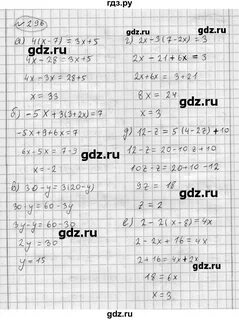 гдз.ру
№ 296
а) 4(x-7) = 3x+5
4x - 28 = 3x+5
4x - 3x = 28+5
x = 33
б) -5x+3(3+2x)=7
-5x+9+6x=7
6x-5x = 7-9
x = -2
в) 30-y = 3(20-y)
30-y = 60-3y
3y-y = 60-30
2y = 30
y = 15
г) 2x-3(7-2x) = 3
2x - 21 + 6x = 3
2x+6x = 3+21
8x = 24
x = 3
д) 12-z = 5(4-2z)+10
12-z = 20-10z+10
10z-z = 20+10-12
9z = 18
z = 2
е) 2-2(x-8) = 4x
2-2x+16 = 4x
2+16 = 4x+2x
18 = 6x
x = 3
gdz.ru
gdz.ru
gdz.ru
gdz.ru
gdz.ru
gdz.ru
gdz.ru